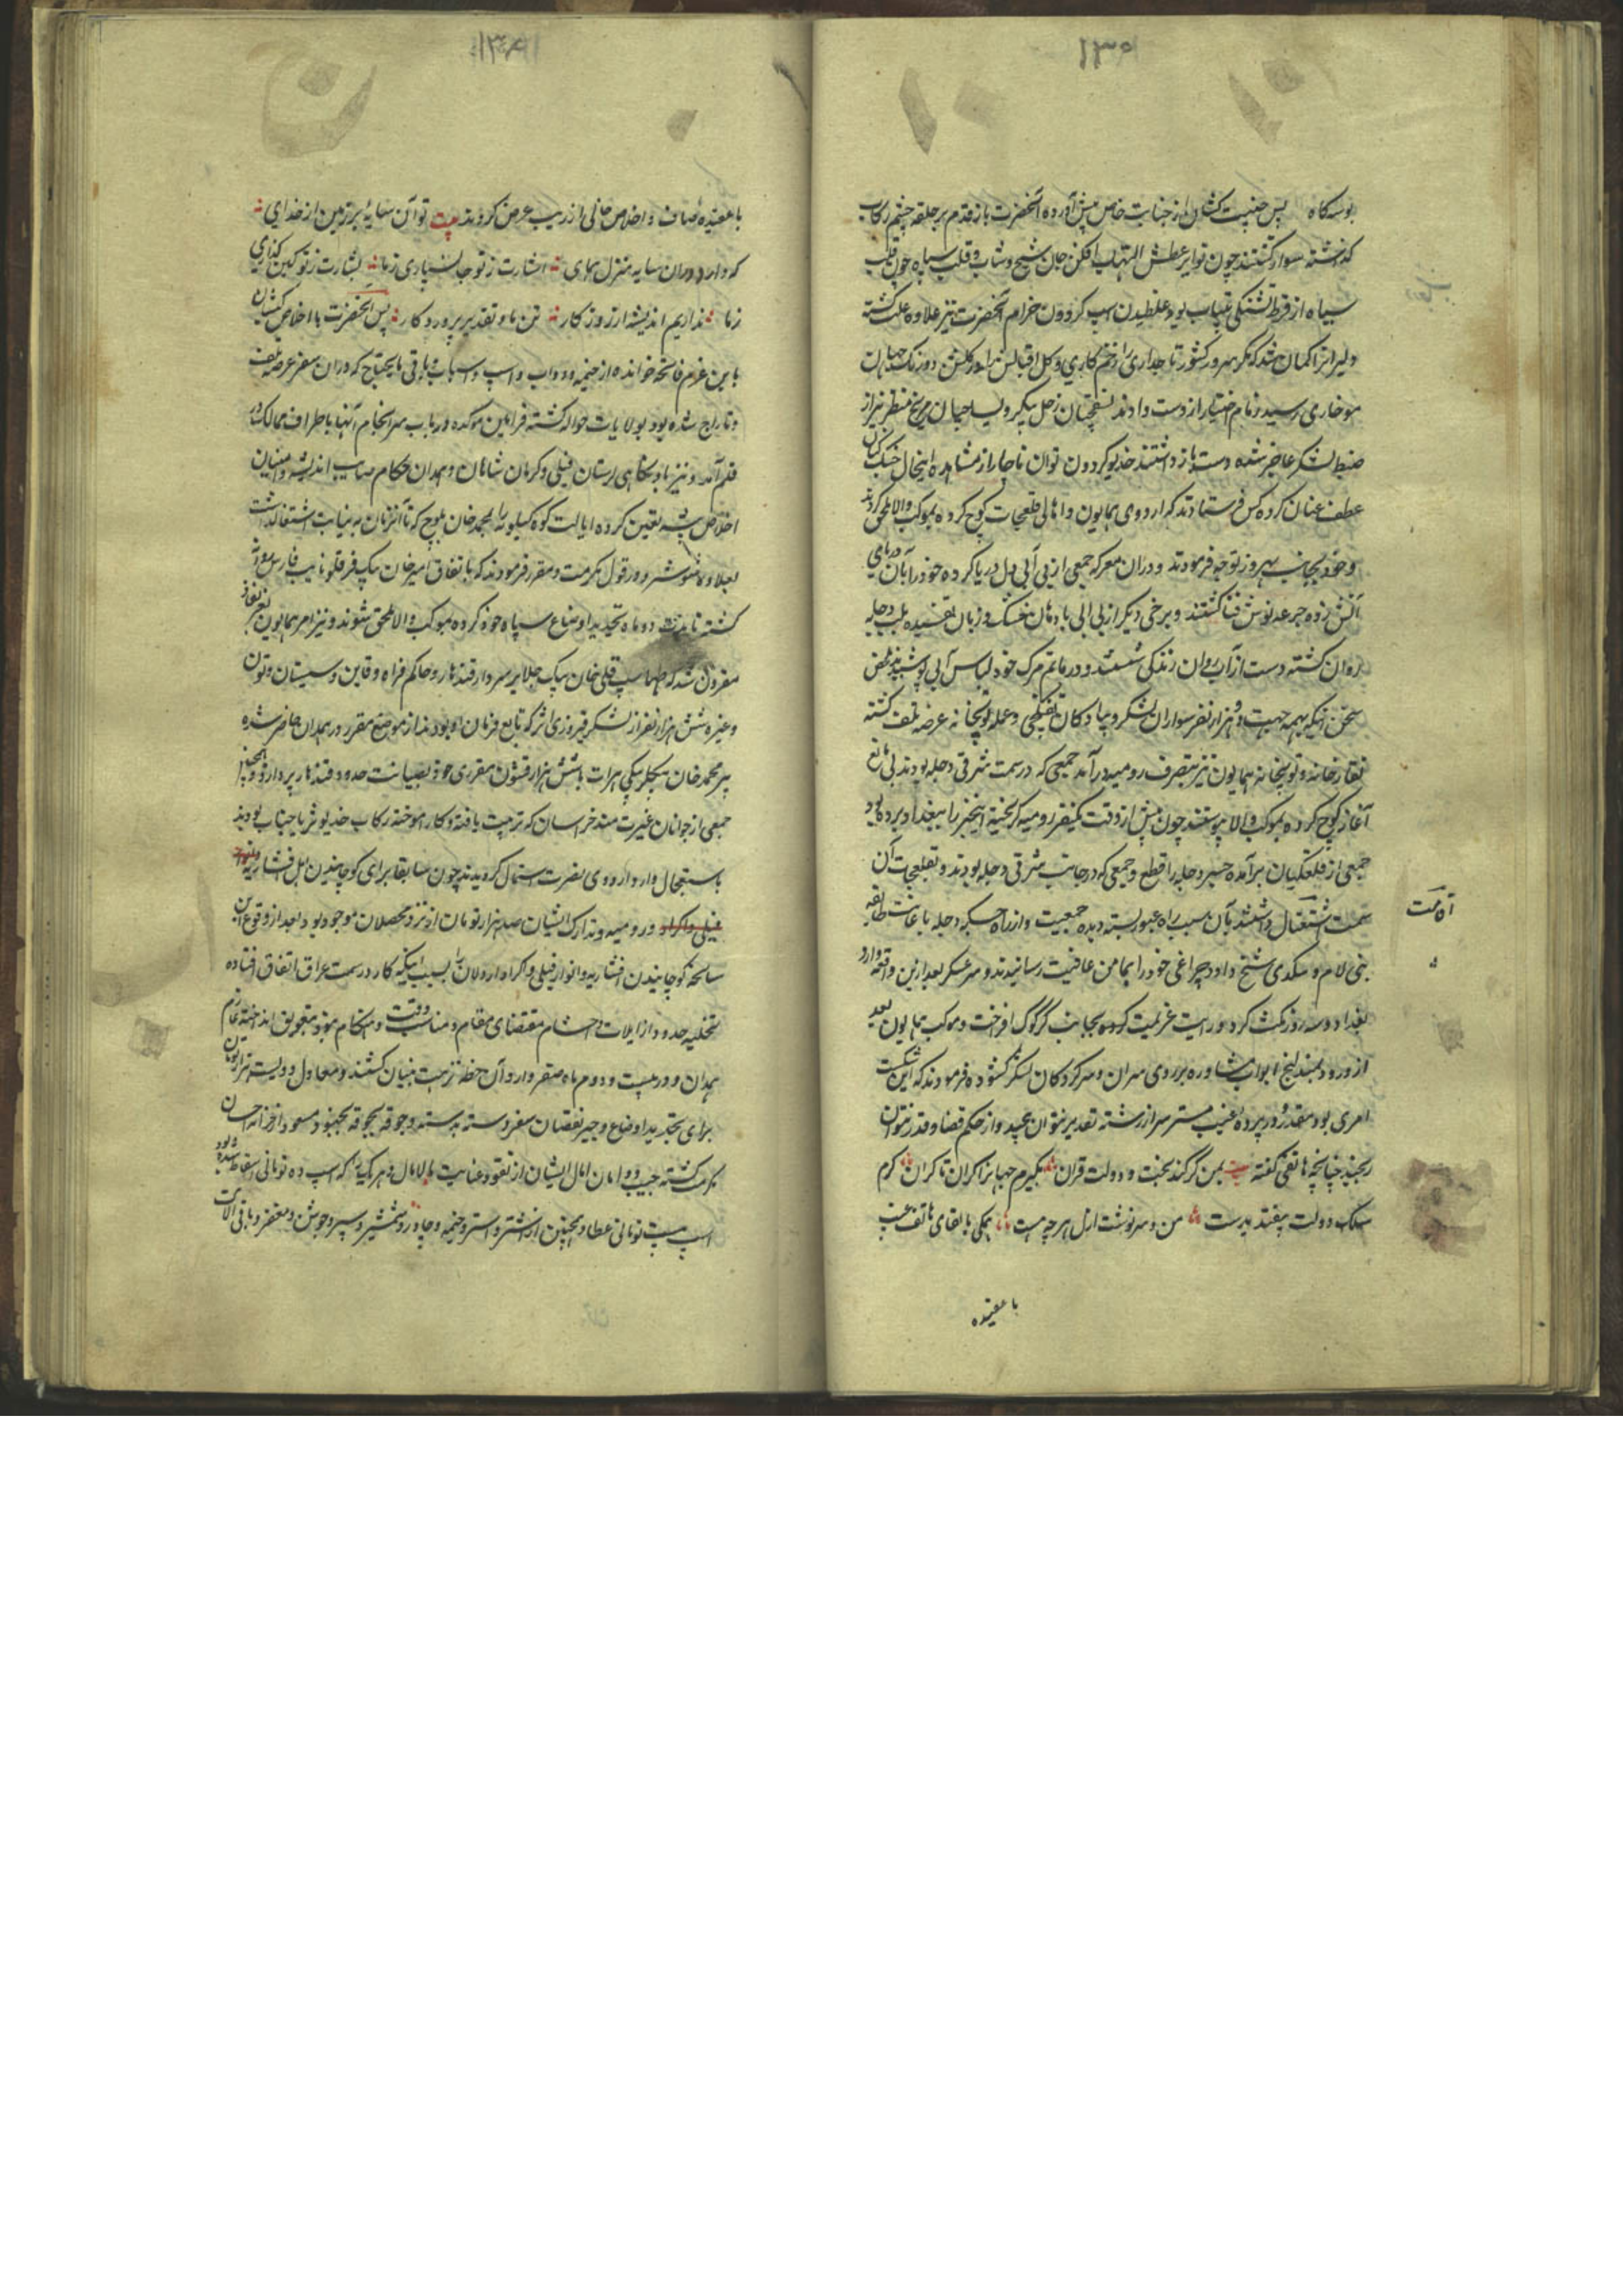 ۱۳۶
بوسه گاه پس جنیبت کشان از جنایب خاص پیش آورده آنحضرت باز قدم بر حلقه چشم رکاب
گذاشته سوار گشتند چون نوایر عطش التهاب افکن جان شیخ و شاب و قلب سپاه چون قلب
سیاه از فرط تشنگی بیتاب بود غلطیدن اسپ گردون خرام آنحضرت نیز علاوه علت گشته
دلیرانرا گمان شد که مگر سرور کشور تاجداری را زخم کاری و گل اقبالش را در گلشن دورنگ جهان
موخاری رسید زمام اختیار از دست دادند نسقچیان زحل پیکر و یساچیان مریخ منظر نیز از
ضبط لشکر عاجز شده دست باز داشتند خدیو گردون توان ناچار از مشاهده اینحال
عطف عنان کرده کس فرستادند که اردوی همایون و اهالی قلعجات کوچ کرده بموکب والا ملحق گردند
و خود بجانب بهروز توجه فرمودند و دران معرکه جمعی از بی آبی دل دریا کرده خود را بآن دریای
آتش زده جرعه نوش فنا گشتند و برخی دیگر از بی ابی با دهان خشک و زبان تفسیده بلب دجله
روان گشته دست از آب روان زندگی شستند و در ماتم مرگ خود لباس آبی پوشیدند
سخن آنکه بهمه جهت دو هزار نفر سواران لشکر و پیادگان تفنگچی و عمله توپخانه عرضه تلف گشته
نقارخانه و توپخانه همایون نیز بتصرف رومیه در آمد جمعی که در سمت شرقی دجله بودند بی مانع
آغاز کوچ کرده بموکب والا پیوستند چون پیش از وقت یکنفر رومیه گریخته اینخبر را ببغداد برده بود
جمعی از قلعگیان بر آمده جسر دجله را قطع و جمعی که در جانب شرقی دجله بودند و بقلعجات آن
سمت اشتغال داشتند بآن سبب راه عبور بسته دیده جمعیت و از راه حسکه دجله باعانت طایفه
اقامت
بنی لام و سگدی شیخ داود چراغی خود را بمامن عافیت رسانیدند و سر عسکر بعد ازین واقعه وارد
بغداد و سه روز مکث کرد و رایت عزیمت کرده بجانب کرکوک افراخت و موکب همایون بعد
از ورود بمندلیج ابواب مشاوره بر روی سران و سرکردگان لشکر گشوده فرمودند که این شکست
امری بود مقدر و در پرده غیب مستتر سر از رشته تقدیر نتوان پیچید و از حکم قضا و قدر نتوان
رنجید چنانچه هاتفی گفته بیت بمن گر کند بخت و دولت قران بگیرم جهانرا کران تا کران گرم
سلک دولت نیفتد بدست من و سرنوشت ازل هر چه هست همگی بالقای هاتف غیب
با عقیده
۱۳۶
با عقیده صاف و اخلاص خالی از ریب عرض کردند بیت تو آن سایه بر زمین از خدای
که دارد دران سایه منزل همای اشارت ز تو جانسپاری ز ما بشارت ز تو کین گذاری
ز ما نداریم اندیشه از روزگار تن ما و تقدیر پروردگار پس آنحضرت با اخلاص کیشان
باین عزم فاتحه خوانده از خیمه و دواب و اسپ و اسباب و باقی مایحتاج که دران سفر عرضه تلف
و تاراج شده بود بولایات حواله گشته فرامین موکده در باب سرانجام آنها باطراف ممالک
قلم آمد و نیز بادیگاهی لرستان فیلی و کرمان شاهان و همدان حکام صایب اندیشه و امینان
اخلاص پیشه تعیین کرده ایالت کوه کیلویه را بمحمد خان بلوچ که تا آنزمان به نیابت اشتغال داشت
بعلاوه شوشتر و دزفول مکرمت و مقرر فرمودند که باتفاق امیر خان بیک قرقلو نایب فارس روانه
گشته تا مدت دو ماه تجدید اوضاع سپاه خود کرده بموکب والا ملحق شوند و نیز امر همایون بعز نفاذ
مقرون شد که طهماسپ قلی خان بیک جلایر سردار قندهار و حاکم فراه و قاین و سیستان و تون
و غیره شش هزار نفر از لشکر فیروزی اثر که تابع فرمان او بودند از موضع مقرر در همدان حاضر شده
پیر محمد خان بیگلربیگی هرات با شش هزار قشون مقرری خود بصیانت حدود قندهار پردازد و همچنین
جمعی از جوانان غیرت مند خراسان که تربیت یافته و کار آموخته رکاب خدیو ثریا جناب بودند
باستعجال وارد اردوی نصرت اشتمال گردیدند چون سابقا برای کوچانیدن ایل افشاریه
فیلی و اکراد و رومیه و تدارک ایشان صد هزار تومان از نزد محصلان موجود بود بعد از وقوع این
سانحه کوچانیدن افشاریه و انوار فیلی و اکراد اردلان را بسبب اینکه کار در سمت عراق اتفاق افتاده
تخلیه حدود از ایلات و احشام مقتضای مقام و مناسب وقت و هنگام نبود بتعویق انداخته عازم
همدان و در بیست و دوم ماه صفر وارد آن خطه نزهت بنیان گشتند و معادل دویست هزار تومان
برای تجدید اوضاع و جبر نقصان سفر دسته بدسته و جوقه بجوقه بجنود مسعود از خزانه احسان
مکرمت گشته جیب و دامان امال ایشان از نقود عنایت مالامال و هر یک را که اسپ ده تومانی سقط شده بود
اسپ بیست تومانی عطا و همچنین از شتر و استر و خیمه و چادر و شمشیر و سپر و جوشن و مغفر و باقی آلات